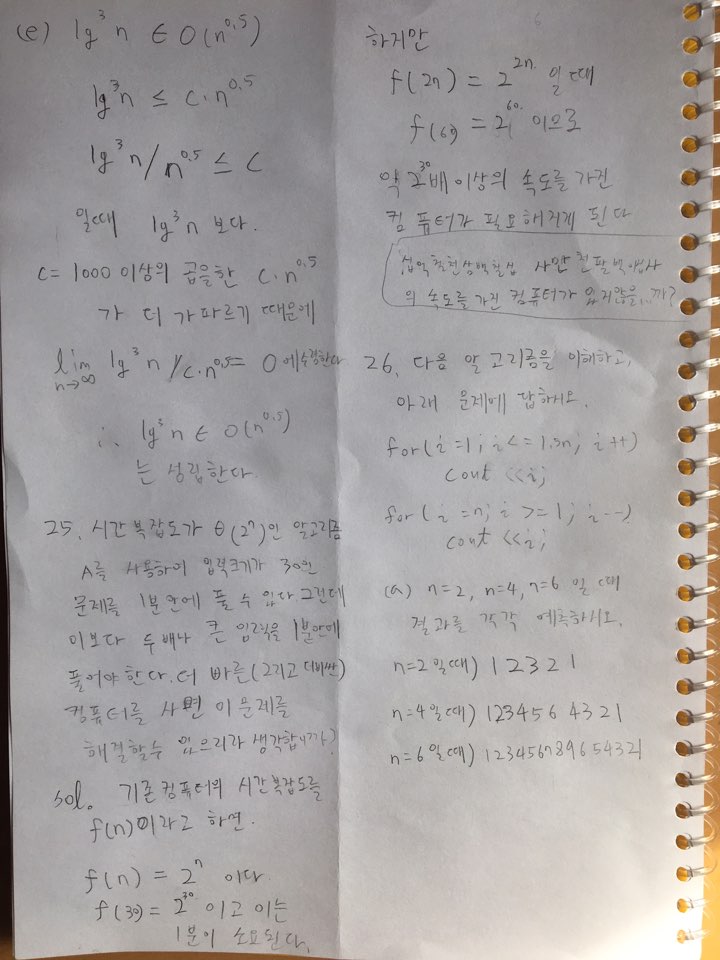 (e) lg³n ∈ O(n^0.5)
lg³n ≤ c·n^0.5
lg³n/n^0.5 ≤ c
일때 lg³n 보다.
c = 1000 이상의 곱을한 c·n^0.5
가 더 가파르기 때문에
lim n→∞ lg³n/c·n^0.5 = 0 에수렴한다
∴ lg³n ∈ O(n^0.5)
는 성립한다.
25. 시간복잡도가 θ(2ⁿ)인 알고리즘
A를 사용하여 입력크기가 30인
문제를 1분안에 풀 수 있다 그런데
이보다 두 배나 큰 입력을 1분안에
풀어야한다. 더 빠른(그리고 더비싼)
컴퓨터를 사면 이 문제를
해결할수 있으리라 생각합니까?
sol. 기존컴퓨터의 시간복잡도를
f(n)이라고 하면.
f(n) = 2ⁿ 이다
f(30) = 2^30 이고 이는
1분이 소요된다.
하지만
f(2n) = 2^2n. 일때
f(60) = 2^60. 이므로
약 2^30배 이상의 속도를 가진
컴퓨터가 필요해지게 된다
십억칠천삼백칠십 사만 천팔백
의 속도를 가진 컴퓨터가 있지않을...까?
26. 다음 알고리즘을 이해하고,
아래 문제에 답하시오.
for(i=1; i<=1.5n; i++)
cout <<i;
for(i=n; i>=1; i--)
cout <<i;
(a) n=2, n=4, n=6 일 때
결과를 각각 예측하시오.
n=2일때) 12321
n=4일때) 1234564321
n=6일때) 123456789654321